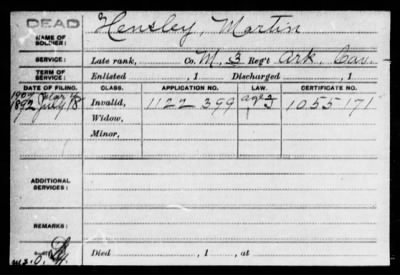 DEAD
NAME OF SOLDIER: Hensley, Martin
SERVICE: Late rank, Co. M. 3 Reg't Ark. Cav.
TERM OF SERVICE: Enlisted , 1 Discharged , 1
DATE OF FILING. CLASS. APPLICATION NO. LAW. CERTIFICATE NO.
1892 July 18 Invalid, 1122 399 1055 171
Widow,
Minor,
ADDITIONAL SERVICES:
REMARKS:
Died , 1 , at